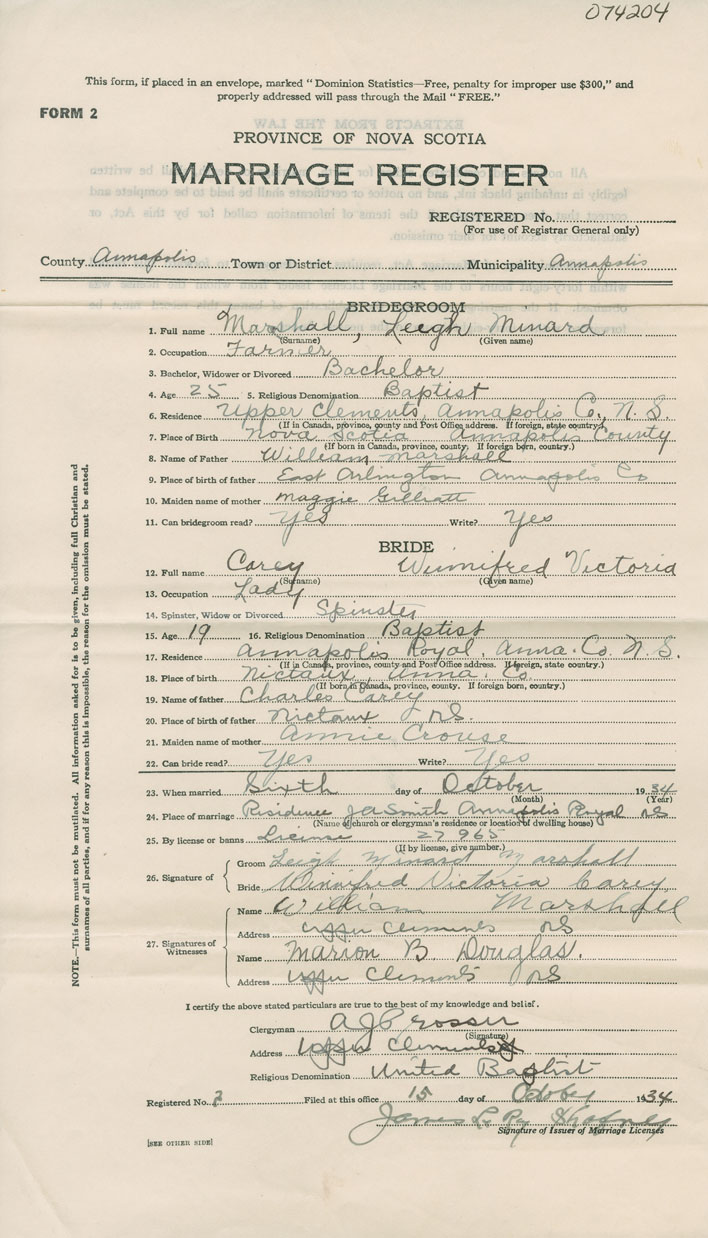 074204
This form, if placed in an envelope, marked "Dominion Statistics—Free, penalty for improper use $300," and
properly addressed will pass through the Mail "FREE."
FORM 2
PROVINCE OF NOVA SCOTIA
MARRIAGE REGISTER
REGISTERED No.
(For use of Registrar General only)
County Annapolis Town or District Municipality Annapolis
BRIDEGROOM
1. Full name Marshall, Leigh Minard
(Surname) (Given name)
2. Occupation Farmer
3. Bachelor, Widower or Divorced Bachelor
4. Age 25 5. Religious Denomination Baptist
6. Residence Upper Clements, Annapolis Co., N.S.
(If in Canada, province, county and Post Office address. If foreign, state country.)
7. Place of Birth Nova Scotia Annapolis County
(If born in Canada, province, county. If foreign born, country.)
8. Name of Father William Marshall
9. Place of birth of father East Arlington Annapolis Co
10. Maiden name of mother Maggie Gilliatt
11. Can bridegroom read? Yes Write? Yes
BRIDE
12. Full name Carey Winnifred Victoria
(Surname) (Given name)
13. Occupation Lady
14. Spinster, Widow or Divorced Spinster
15. Age 19 16. Religious Denomination Baptist
17. Residence Annapolis Royal, Anna. Co. N.S.
(If in Canada, province, county and Post Office address. If foreign, state country.)
18. Place of birth Nictaux, Anna. Co.
(If born in Canada, province, county. If foreign born, country.)
19. Name of father Charles Carey
20. Place of birth of father Nictaux NS.
21. Maiden name of mother Annie Crouse
22. Can bride read? Yes Write? Yes
23. When married Sixth day of October 1934
(Month) (Year)
24. Place of marriage Residence J A Smith Annapolis Royal NS
(Name of church or clergyman's residence or location of dwelling house)
25. By license or banns License 27965
(If by license, give number.)
26. Signature of
Groom Leigh Minard Marshall
Bride Winnifred Victoria Carey
27. Signatures of Witnesses
Name William Marshall
Address Upper Clements NS
Name Marion B. Douglas.
Address Upper Clements NS
I certify the above stated particulars are true to the best of my knowledge and belief.
Clergyman A J Prosser
(Signature)
Address Upper Clements
Religious Denomination United Baptist
Registered No. 2 Filed at this office 15 day of October 1934
James
Signature of Issuer of Marriage Licenses
[SEE OTHER SIDE]
NOTE.—This form must not be mutilated. All information asked for is to be given, including full Christian and
surnames of all parties, and if for any reason this is impossible, the reason for the omission must be stated.